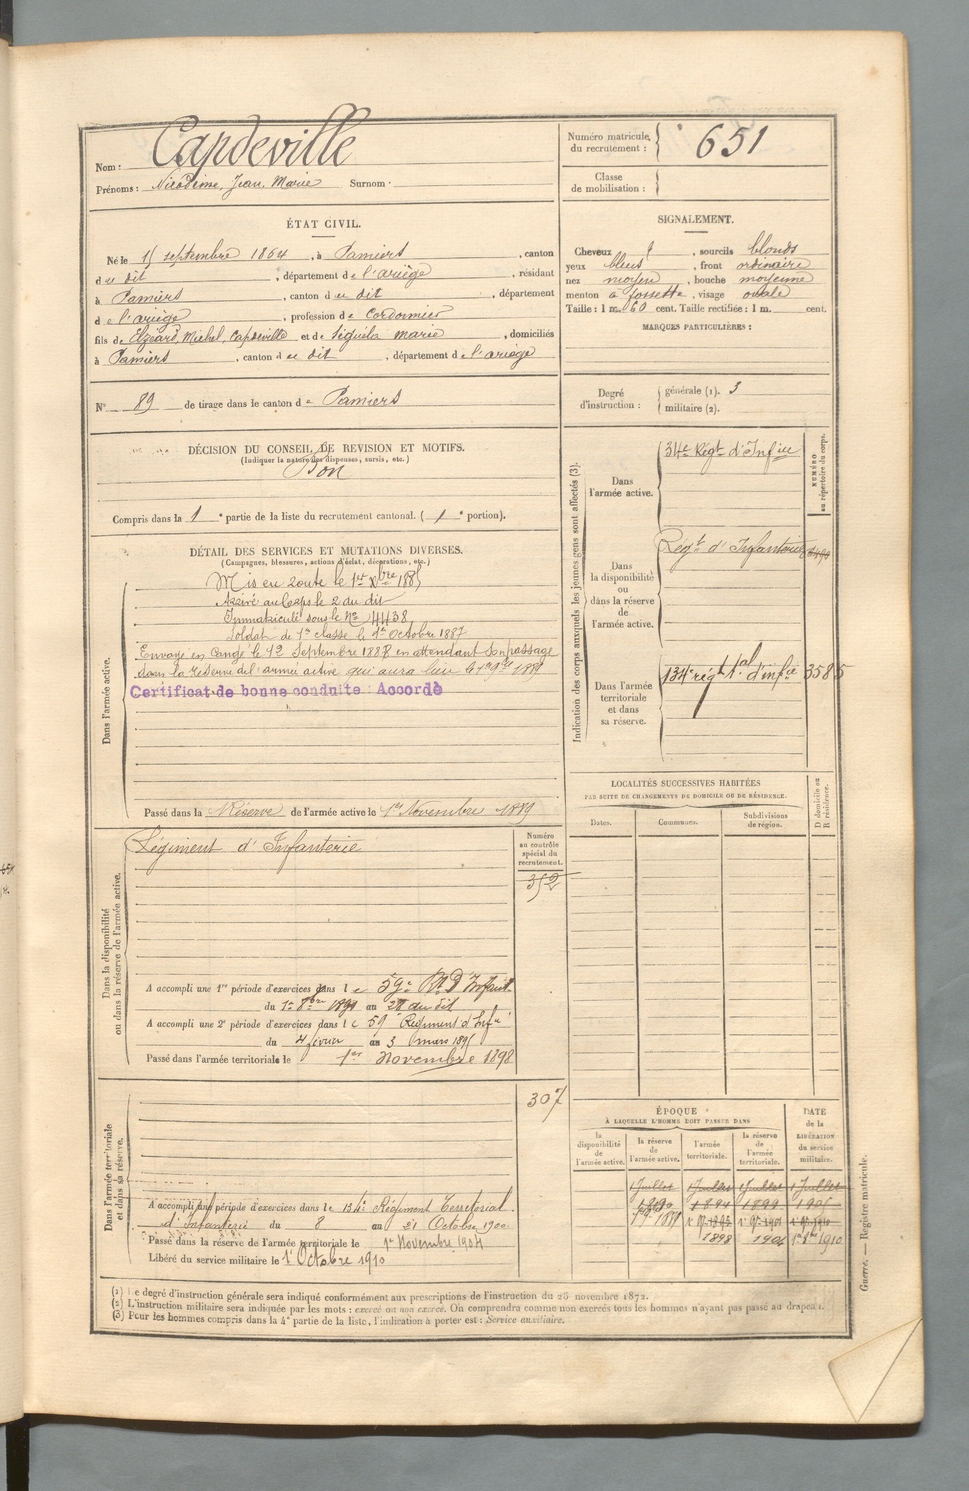 Nom : Capdeville
Prénoms : Nicodème, Jean, Marie Surnom :
Numéro matricule du recrutement : 651
Classe de mobilisation :
ÉTAT CIVIL.
Né le 15 septembre 1864, à Pamiers, canton
du dit, département de l'ariège, résidant
à Pamiers, canton du dit, département
de l'ariège, profession de Cordonnier
fils de Elzéard, Michel, Capdeville et de Séguéla marie, domiciliés
à Pamiers, canton du dit, département de l'ariège
SIGNALEMENT.
Cheveux, sourcils blonds
yeux bleus, front ordinaire
nez moyen, bouche moyenne
menton à fossette, visage ovale
Taille : 1 m. 60 cent. Taille rectifiée : 1 m. cent.
MARQUES PARTICULIÈRES :
N° 89 de tirage dans le canton de Pamiers
Degré d'instruction : générale (1). 3
militaire (2).
DÉCISION DU CONSEIL DE REVISION ET MOTIFS.
(Indiquer la nature des dispenses, sursis, etc.)
Bon
Compris dans la 1e partie de la liste du recrutement cantonal. (1e portion).
DÉTAIL DES SERVICES ET MUTATIONS DIVERSES.
(Campagnes, blessures, actions d'éclat, décorations, etc.)
Dans l'armée active.
Mis en route le 1er Xbre 1885
Arrivé au Corps le 2 du dit
Immatriculé sous le No 4438
Soldat de 1e classe le 1er Octobre 1887
Envoyé en Congé le 12 Septembre 1888 en attendant son passage
dans la réserve de l'armée active qui aura lieu le 1er 9bre 1889
Certificat de bonne conduite : Accordé
Passé dans la Réserve de l'armée active le 1er Novembre 1889
Indication des corps auxquels les jeunes gens sont affectés (3).
NUMÉRO au répertoire du corps.
Dans l'armée active.
34e Régt d'Infie
Dans la disponibilité ou dans la réserve de l'armée active.
Régt d'Infanterie
Dans l'armée territoriale et dans sa réserve.
134e régt tal d'infie 3585
LOCALITÉS SUCCESSIVES HABITÉES
PAR SUITE DE CHANGEMENTS DE DOMICILE OU DE RÉSIDENCE.
Dates. Communes. Subdivisions de région. D domicile ou R résidence.
Dans la disponibilité ou dans la réserve de l'armée active.
Régiment d'Infanterie
Numéro au contrôle spécial du recrutement.
352
A accompli une 1re période d'exercices dans le 59e Rt D'Infant.
du 1er 8bre 1891 au 28 du dit
A accompli une 2e période d'exercices dans le 59e Régiment d'Infie
du 4 février au 3 mars 1895
Passé dans l'armée territoriale le 1er Novembre 1898
307
Dans l'armée territoriale et dans sa réserve.
A accompli une période d'exercices dans le 134e Régiment Territorial
d'Infanterie du 8 au 21 Octobre 1900
Passé dans la réserve de l'armée territoriale le 1er Novembre 1904
Libéré du service militaire le 1er Octobre 1910
ÉPOQUE
À LAQUELLE L'HOMME DOIT PASSER DANS
DATE de la LIBÉRATION du service militaire.
la disponibilité de l'armée active. la réserve de l'armée active. l'armée territoriale. la réserve de l'armée territoriale.
1 Juillet 1 Juillet 1 Juillet 1 Juillet
1890 1894 1899 1905
1898 1904 1er 8bre 1910
(1) Le degré d'instruction générale sera indiqué conformément aux prescriptions de l'instruction du 28 novembre 1872.
(2) L'instruction militaire sera indiquée par les mots : exercé ou non exercé. On comprendra comme non exercés tous les hommes n'ayant pas passé au drapeau.
(3) Pour les hommes compris dans la 4e partie de la liste, l'indication à porter est : Service auxiliaire.
Guerre. — Registre matricule.